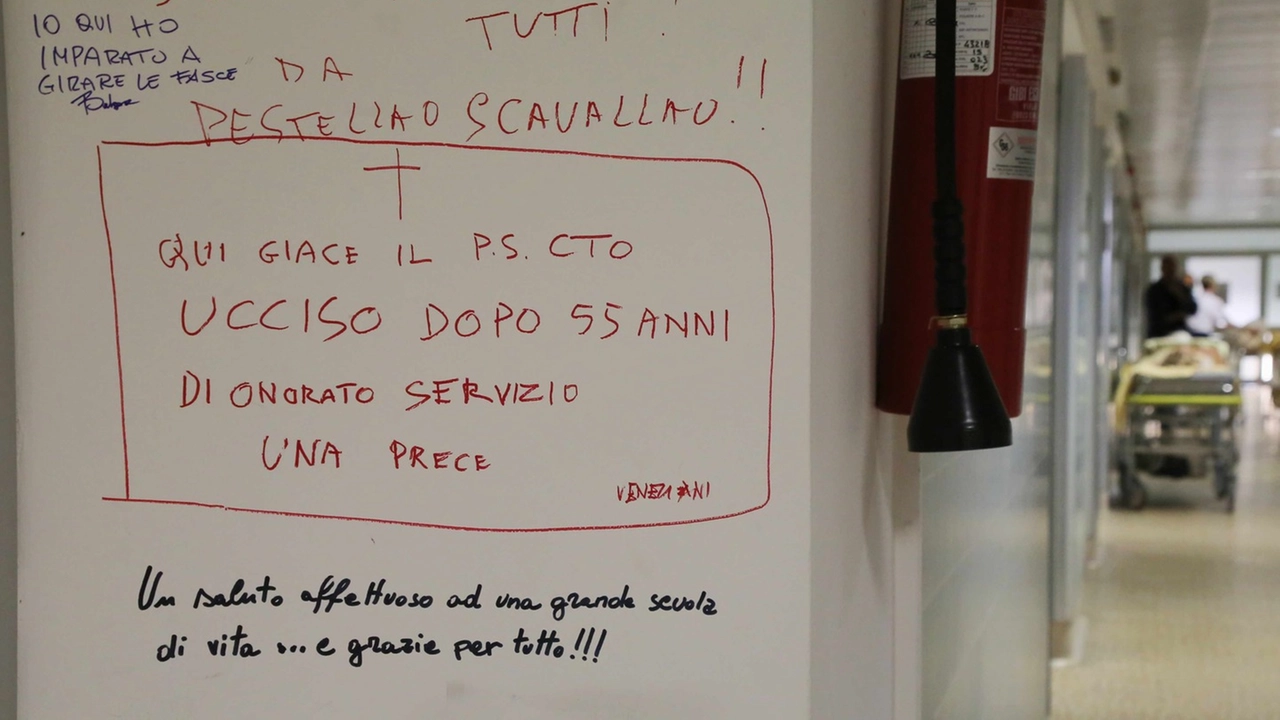 IO QUI HO
IMPARATO A
GIRARE LE FASCE
TUTTI !
DA
PESTELLAO SCAVALLAO!!
QUI GIACE IL P.S. CTO
UCCISO DOPO 55 ANNI
DI ONORATO SERVIZIO
UNA PRECE
VENEZIANI
Un saluto affettuoso ad una grande scuola
di vita ... e grazie per tutto!!!